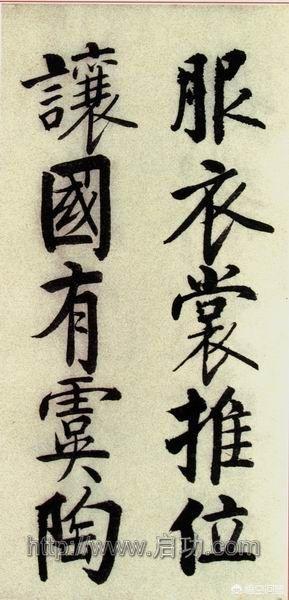 服衣裳推位
讓國有虞陶
http://www.启功.com